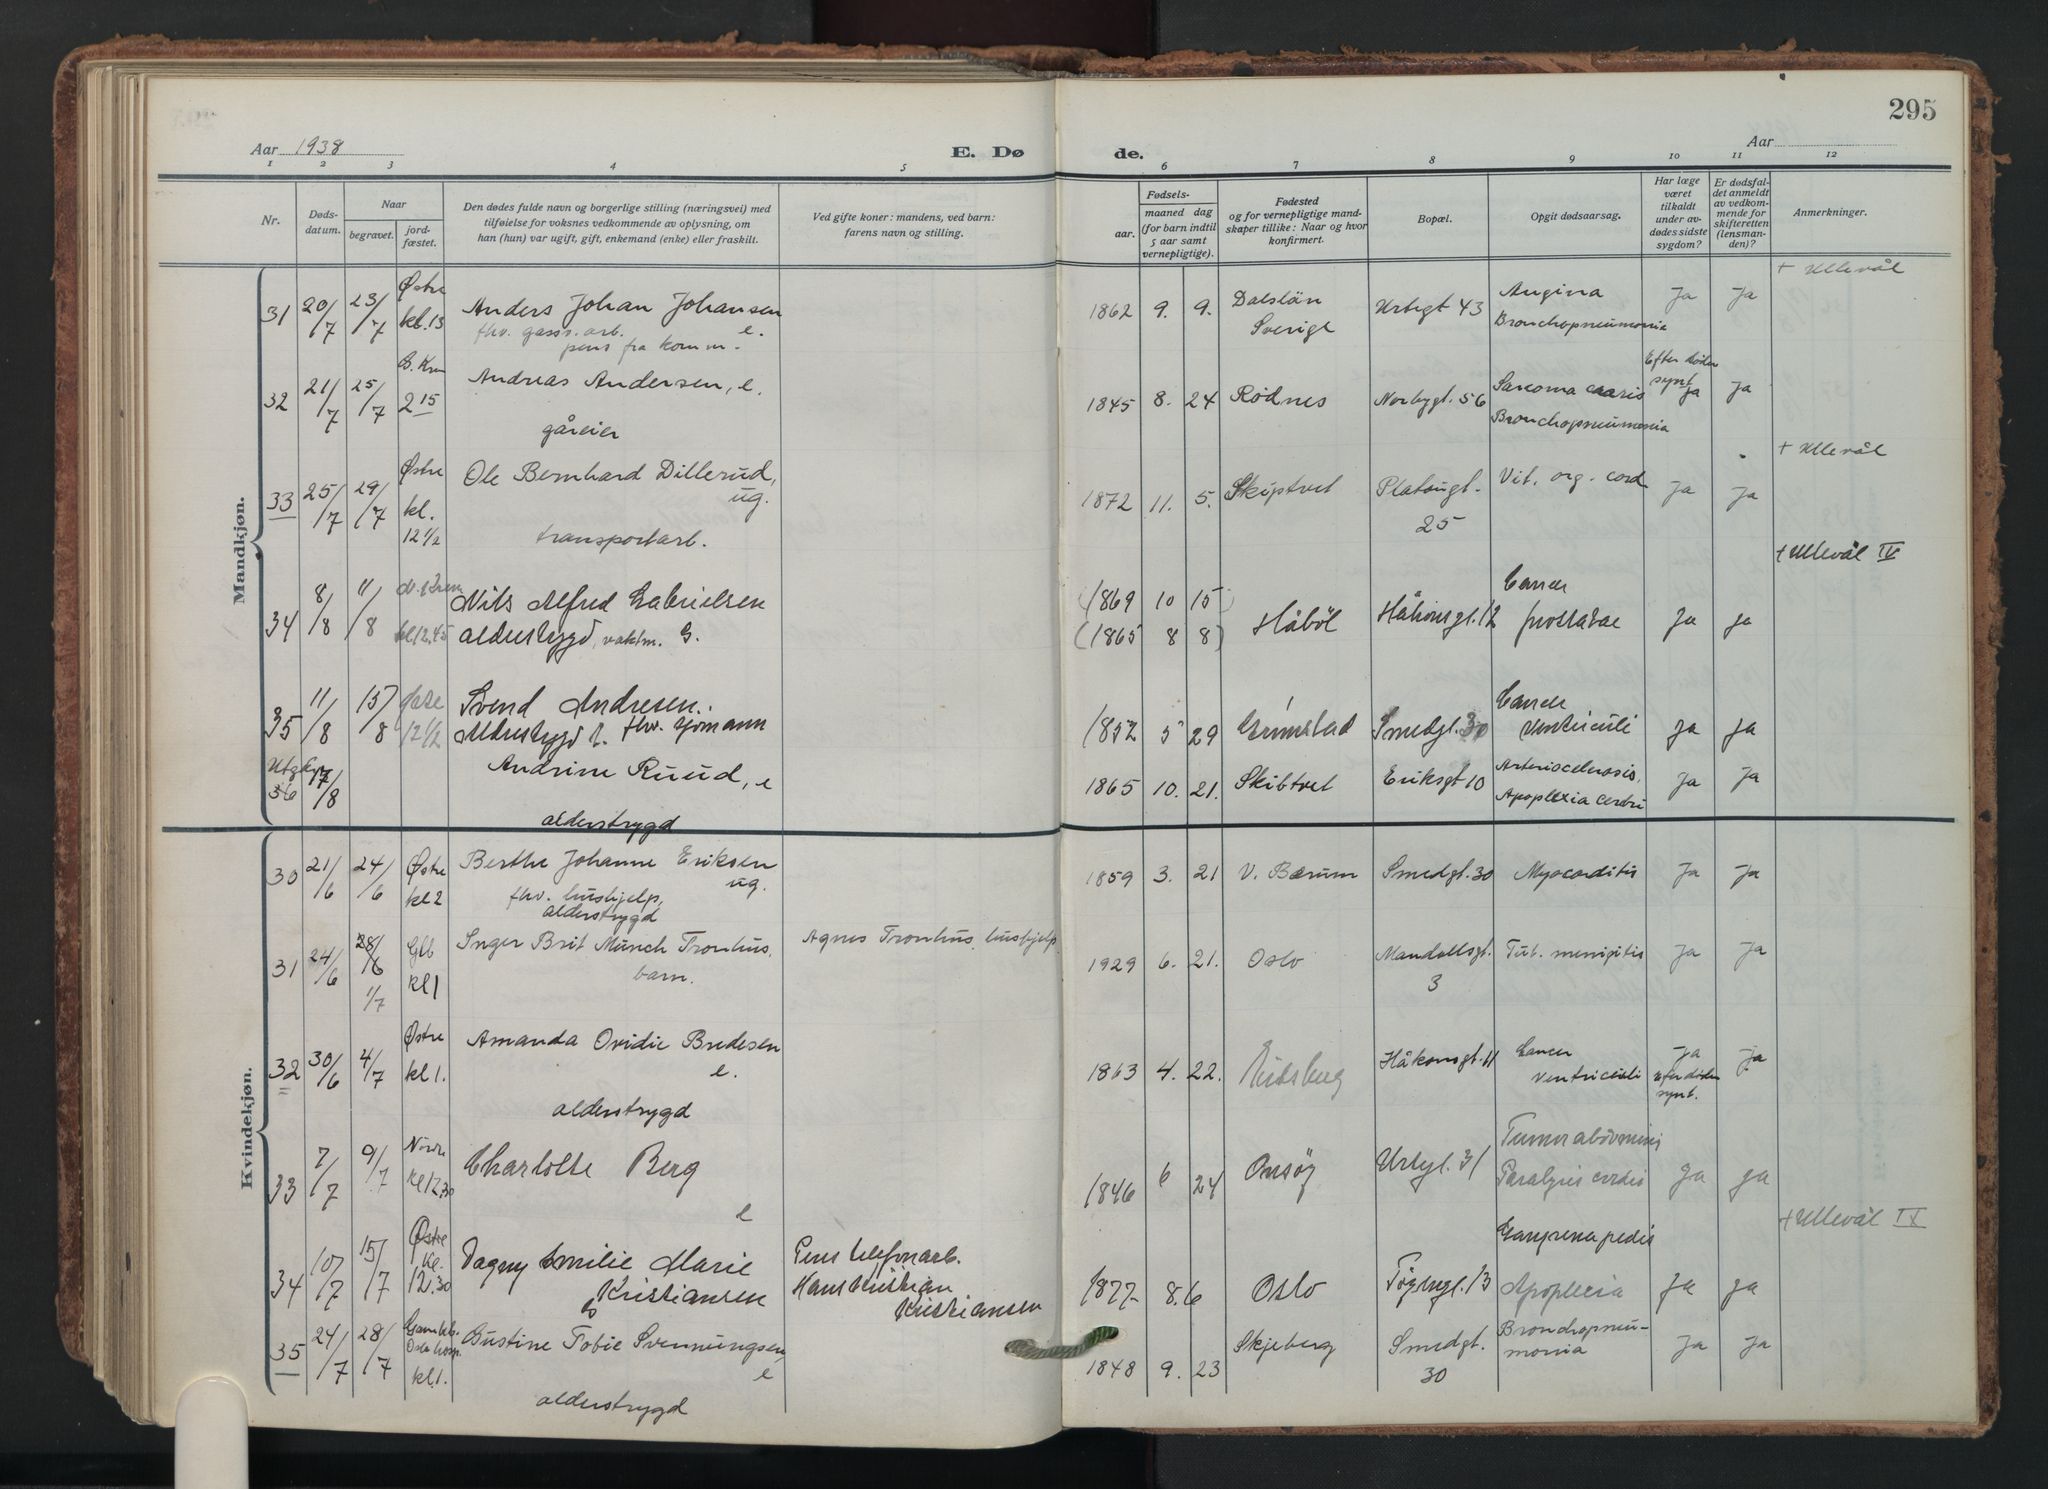 295
Aar 1938
E. Dø
de.
Aar
1 2 3 4 5 6 7 8 9 10 11 12
Nr.
Døds-
datum.
Naar
begravet.
jord-
fæstet.
Den dødes fulde navn og borgerlige stilling (næringsvei) med
tilføielse for voksnes vedkommende av oplysning, om
han (hun) var ugift, gift, enkemand (enke) eller fraskilt.
Ved gifte koner: mandens, ved barn:
farens navn og stilling.
Fødsels-
aar.
maaned dag
(for barn indtil
5 aar samt
vernepligtige).
Fødested
og for vernepligtige mand-
skaper tillike: Naar og hvor
konfirmert.
Bopæl.
Opgit dødsaarsag.
Har læge
været
tilkaldt
under av-
dødes sidste
sygdom?
Er dødsfal-
det anmeldt
av vedkom-
mende for
skifteretten
(lensman-
den)?
Anmerkninger.
Mandkjøn.
+ Ullevål
31 20/7 23/7 Østre kl. 13 Anders Johan Johansen e. 1862 9. 9. Dalslän Sverige Urtegt 43 Angina Bronchopneumonia Ja Ja
fhv. gassv. arb.
pens fra komm.
32 21/7 25/7 2 15 Andreas Andersen, e. 1845 8. 24 Rødnes Norbygt. 56 Sarcoma Bronchopneumonia Efter døden synt Ja Ja
gåreier
+ Ullevål
33 25/7 29/7 Østre kl. 12 1/2 Ole Bernhard Dillerud, ug. 1872 11. 5. Skiptvet Platougt. 25 Vit. org. cord Ja Ja
transportarb.
+ Ullevål IV
34 8/8 11/8 kl 12.45 Nils Alfred Gabrielsen 1869 10 15 Håböl Håkonsgt. 12 Cancer prostatae Ja Ja
alderstrygd, vaktm. G. (1865 8 8)
35 11/8 15/8 Østre 12 1/2 Svend Andresen. 1852 5 29 Grimstad Smedgt. 30 Cancer ventriculi Ja Ja
Alderstrygd
36 17/8 Andrine Ruud, e 1865 10. 21. Skibtvet Eriksgt 10 Arteriosclerosis, Apoplexia cerebri Ja Ja
alderstrygd
Kvindekjøn.
30 21/6 24/6 Østre kl 2 Berthe Johanne Eriksen ug. 1859 3. 21 V. Bærum Smedgt. 30 Myocarditis Ja Ja
fhv. hushjelp,
alderstrygd
31 24/6 28/6 1/7 Glb kl 1 Inger Brit Münch Tronhus, Agnes Tronhus, hushjelp 1929 6. 21. Oslo Mandallsgt. 3 Tub. menigitis Ja Ja
barn.
32 30/6 4/7 Østre kl 1. Amanda Ovidie Bredesen e. 1863 4. 22. Eidsberg Håkonsgt. 11 Cancer ventriculi Ja efter døden synt. Ja
alderstrygd
33 7/7 9/7 Nordre kl 12.30 Charlotte Berg e 1846 6 24 Onsøy Urtegt. 31 Tumor abdominis Paralysis cordis Ja Ja
+ Ullevål IX
34 10/7 15/7 Østre kl. 12.30 Dagny Emilie Marie Kristiansen G Pens telefonarb. Hans Kristian Kristiansen 1877 8. 6 Oslo Tøyengt. 13 Gangrena pedis Apoplexia Ja Ja
35 24/7 28/7 Gamleb. Oslo hosp. kl. 1. Gustine Tobie Svennungsen, e 1848 9. 23 Skjeberg Smedgt. 30 Bronchopneu-
monia Ja Ja
alderstrygd